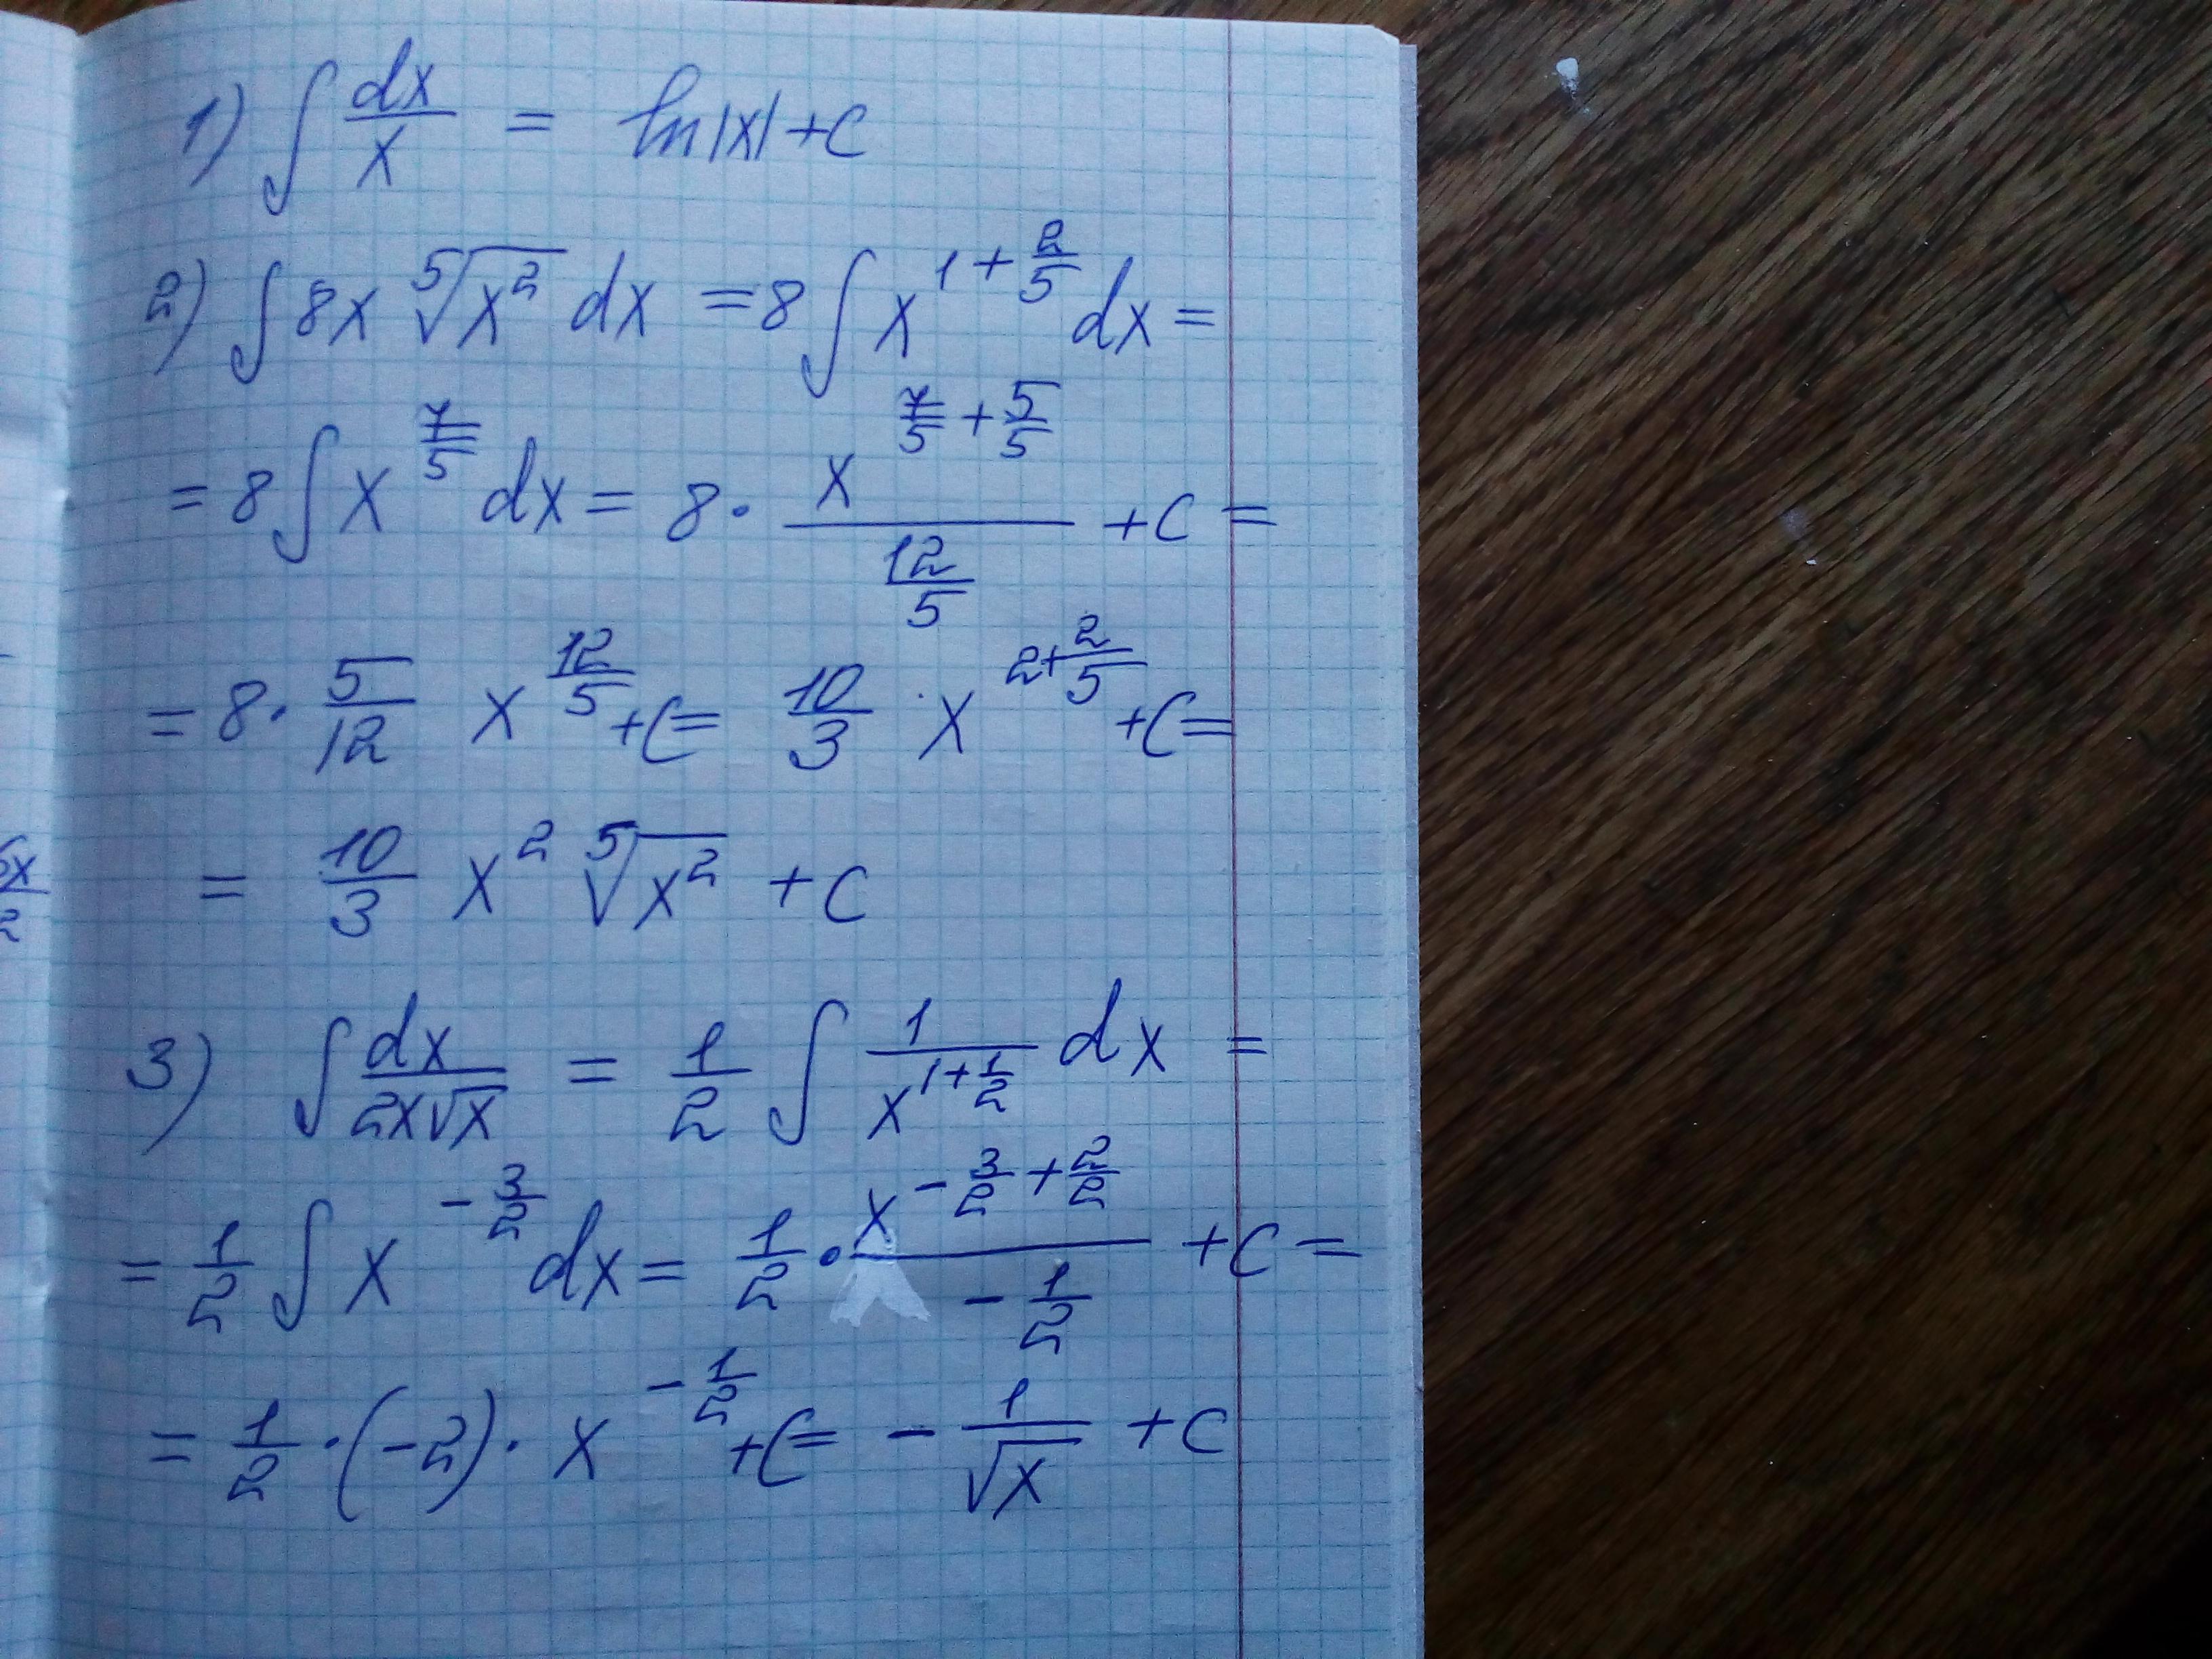 1) ∫ dx/x = ln|x| + C
2) ∫ 8x ⁵√(x²) dx = 8 ∫ x^(1 + 2/5) dx =
= 8 ∫ x^(7/5) dx = 8 · x^(7/5 + 5/5) / (12/5) + C =
= 8 · 5/12 x^(12/5) + C = 10/3 x^(2 + 2/5) + C =
= 10/3 x² ⁵√(x²) + C
3) ∫ dx/(2x√x) = 1/2 ∫ 1/x^(1 + 1/2) dx =
= 1/2 ∫ x^(-3/2) dx = 1/2 · x^(-3/2 + 2/2) / (-1/2) + C =
= 1/2 · (-2) · x^(-1/2) + C = - 1/√x + C